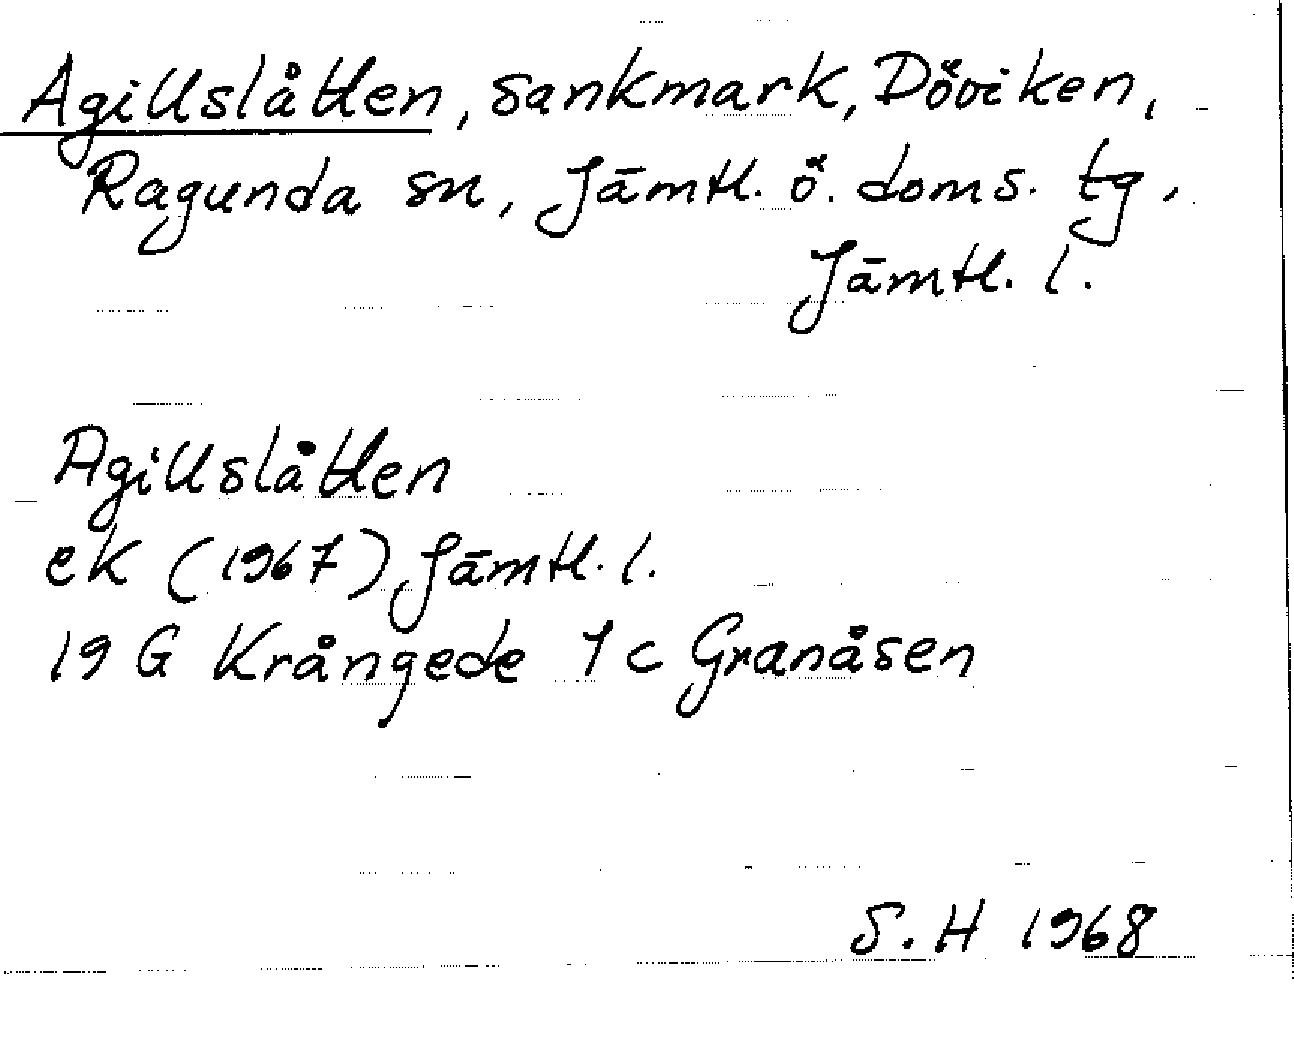 Agillslåtten, sankmark, Döviken,
Ragunda sn, Jämtl. ö. doms. tg,
Jämtl. l.
Agillslåtten
ek (1967) Jämtl. l.
19 G Krångede 1 c Granåsen
S. H 1968